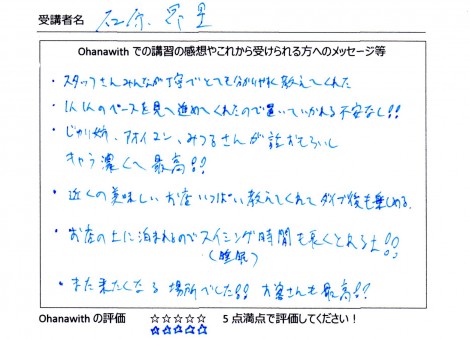 受講者名
Ohanawith での講習の感想やこれから受けられる方へのメッセージ等
・スタッフさんみんなが丁寧でとても分かりやすく教えてくれた
・1人1人のペースを見て進めてくれたので置いていかれる不安なし!!
・じゃり姉、アオイエン、みつるさんが話おもろいし
キャラ濃くて最高!!
・近くの美味しいお店いっぱい教えてくれてダイブ後も楽しめる。
・お店の上に泊まれるのでスイミング時間も長くとれる!!
(睡眠)
・また来たくなる場所でした!! お客さんも最高!!
Ohanawith の評価 ☆☆☆☆☆ 5 点満点で評価してください！
☆☆☆☆☆